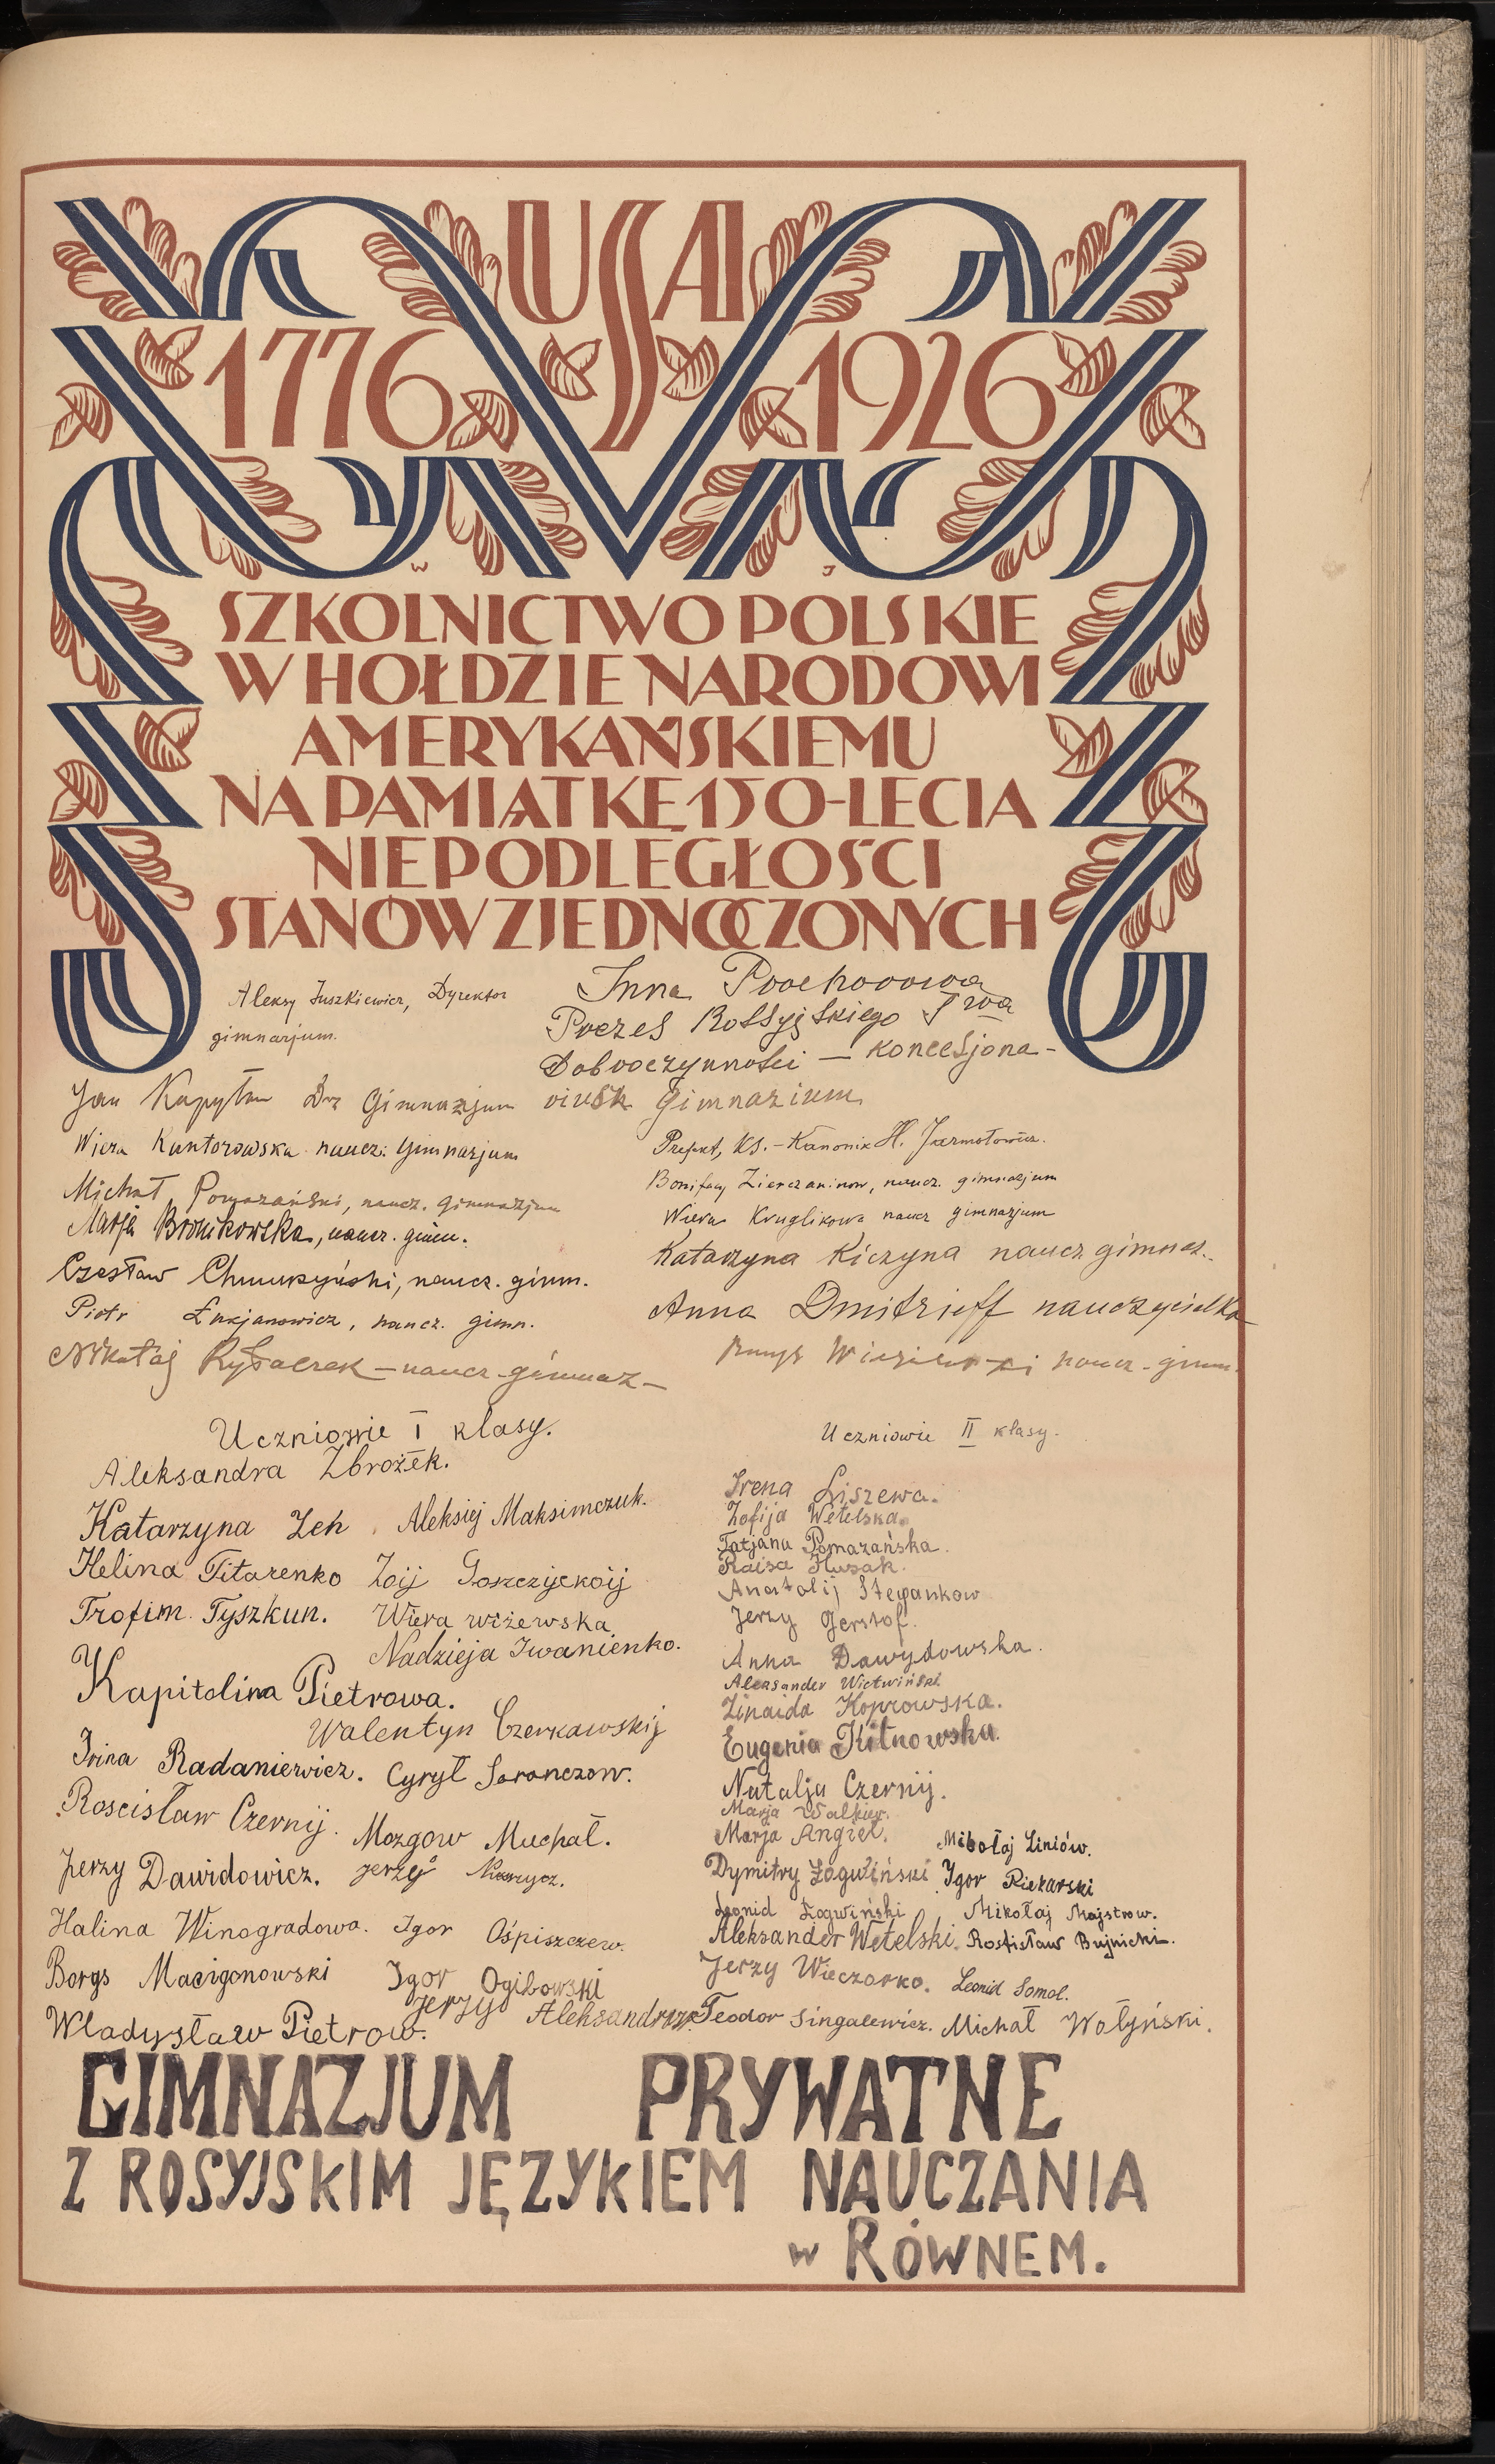 USA
1776 1926
W J
SZKOLNICTWO POLSKIE
W HOŁDZIE NARODOWI
AMERYKAŃSKIEMU
NA PAMIĄTKĘ 150-LECIA
NIEPODLEGŁOŚCI
STANÓW ZJEDNOCZONYCH
Aleksy Juszkiewicz, Dyrektor
gimnazjum.
Inna Prochorowa
Prezes Rossyjskiego T-wa
Dobroczynności – koncesjona-
Gimnazium
Jan Kapyłow Gimnazjum
Wiera Kuntorowska naucz. Gimnazjum
Michał Pomazański, naucz. gimnazjum
Marja Bronikowska, naucz. gimn.
Czesław Chmurzyński, naucz. gimn.
Piotr Łukjanowicz, naucz. gimn.
Mikołaj Rybaczek – naucz. gimnaz –
Prefekt, Ks. – Kanonik H. Jarmołowicz.
Bonifacy Zierczaninow, naucz. gimnazjum
Wiera Kruglikowa naucz gimnazjum
Katarzyna Kiczyna naucz gimnaz.
Anna Dmitrieff nauczycielka
naucz. gimn.
Uczniowie I klasy.
Aleksandra Zbrożek.
Katarzyna Zeh Aleksiej Maksimczuk.
Helina Titarenko Zoij
Trofim Tyszkun. Wiera Wiżewska
Nadzieja Iwanienko.
Kapitolina Pietrowa.
Walentyn Czerkawskij
Irina Radaniewicz. Cyryl Saranczow.
Rościsław Czernij. Mozgow Muchał.
Jerzy Dawidowicz. Jerzy
Halina Winogradowa. Igor Ośpiszczew.
Borys Macigonowski Igor Ogibowski
Jerzy Aleksandrow
Władysław Pietrow.
Uczniowie II klasy.
Irena Liszewa.
Zofija Wetelska.
Tatjana Pomazańska.
Raisa Husak.
Anatolij Stepankow
Jerzy Gerstof.
Anna Dawydowska.
Aleksander Wietwiński
Zinaida Koprowska.
Eugenia Kitnowska.
Natalja Czernij.
Marja Walkiew.
Marja Angieł. Mikołaj Liniów.
Dymitry Łogwiński Igor Piekarski
Leonid Łogwiński, Mikołaj Majstrow.
Aleksander Wetelski. Rostisław Bujnicki.
Jerzy Wieczorko. Leonid Somol.
Teodor Singalewicz. Michał Wołyński.
GIMNAZJUM PRYWATNE
Z ROSYJSKIM JĘZYKIEM NAUCZANIA
w RÓWNEM.